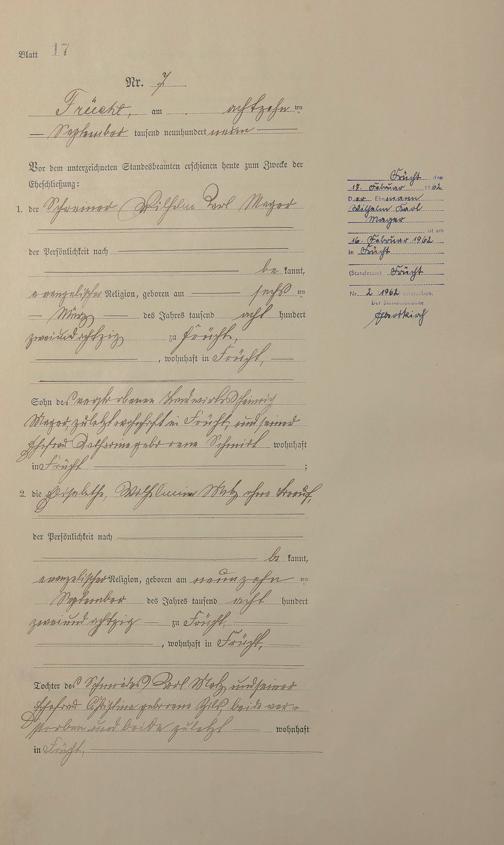 Blatt 17
Nr. 7
Frücht, am achtzehn ten
September tausend neunhundert neun
Vor dem unterzeichneten Standesbeamten erschienen heute zum Zwecke der
Eheschließung:
1. der Schreiner Wilhelm Karl Mayer
der Persönlichkeit nach
be kannt,
evangelischer Religion, geboren am sechs ten
März des Jahres tausend acht hundert
zweiundachtzig zu Frücht,
, wohnhaft in Frücht,
Sohn des verstorbenen Landwirts Heinrich
Mayer, zuletzt wohnhaft in Frücht, und seiner
Ehefrau Katharine geborene Schmidt wohnhaft
in Frücht ;
2. die Wilhelmine Metz ohne Beruf,
der Persönlichkeit nach
be kannt,
evangelischer Religion, geboren am neunzehn ten
September des Jahres tausend acht hundert
zweiundachtzig zu Frücht,
, wohnhaft in Frücht,
Tochter des Karl Metz und seiner
Ehefrau Christine geborene beide ver-
storben und beide zuletzt wohnhaft
in Frücht.
Frücht, den
18. Februar 1962
Der Ehemann
Wilhelm Karl
Mayer
ist am
16. Februar 1962
in Frücht
(Standesamt Frücht
Nr. 2 1962
Der Standesbeamte